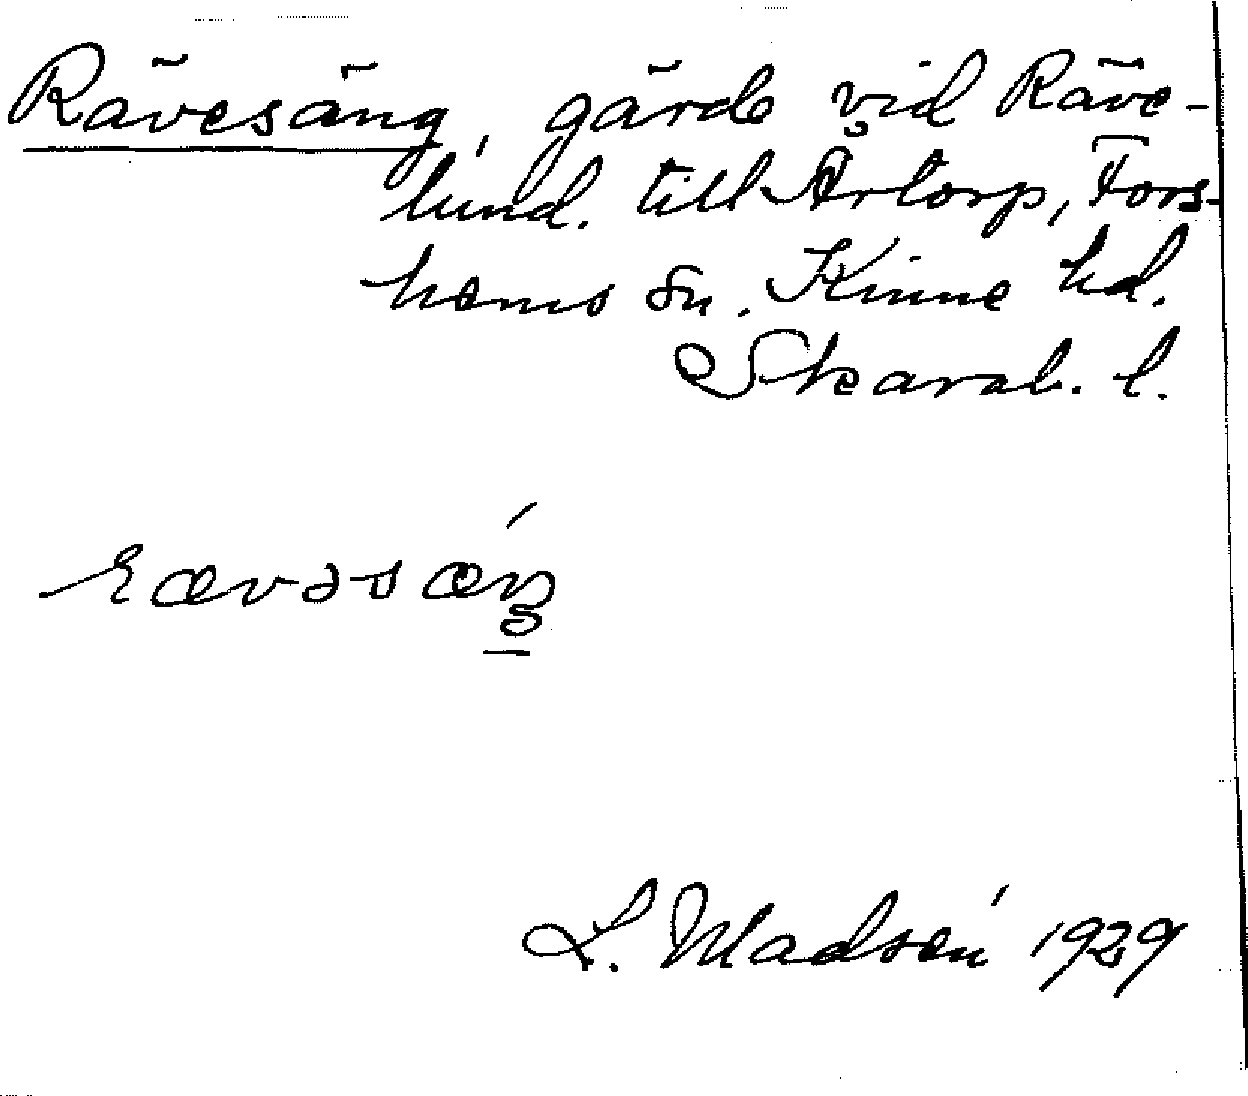 Rävesäng, gärde vid Räve-
lund. till Årtorp, Fors-
hems sn. Kinne hd.
Skarab. l.
L. Madsén 1929